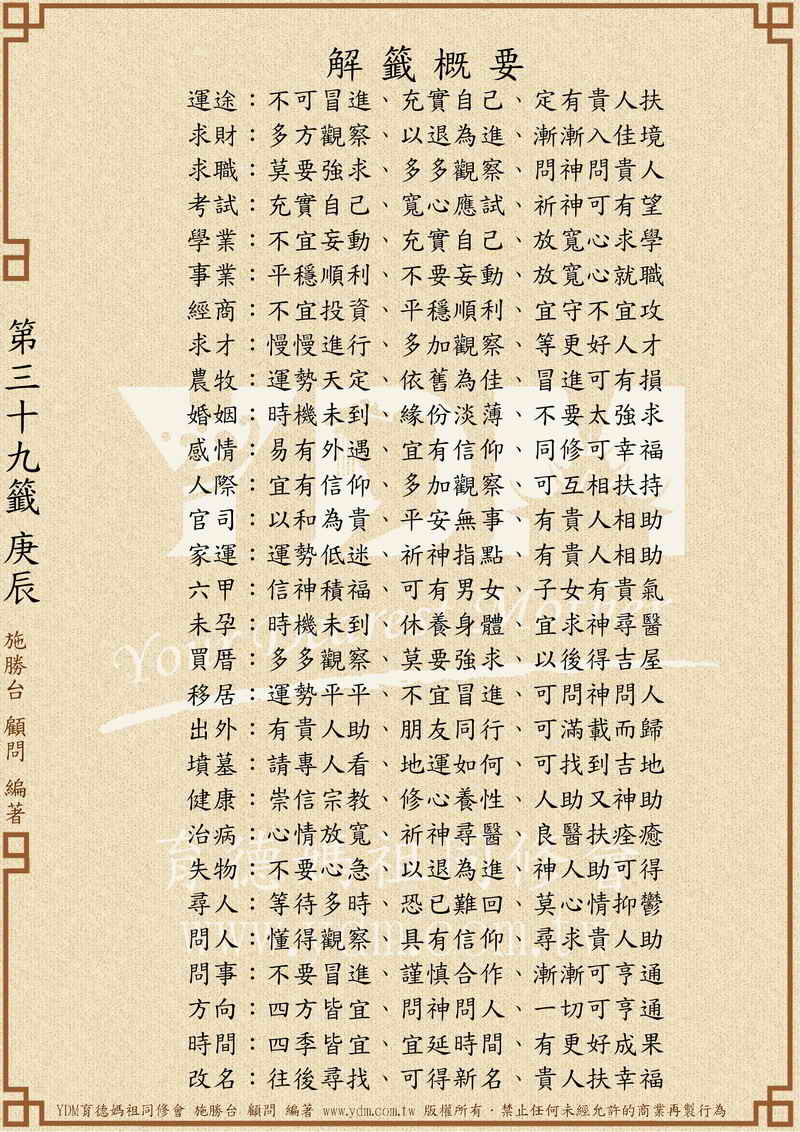 解籤概要
運途：不可冒進、充實自己、定有貴人扶
求財：多方觀察、以退為進、漸漸入佳境
求職：莫要強求、多多觀察、問神問貴人
考試：充實自己、寬心應試、祈神可有望
學業：不宜妄動、充實自己、放寬心求學
事業：平穩順利、不要妄動、放寬心就職
經商：不宜投資、平穩順利、宜守不宜攻
求才：慢慢進行、多加觀察、等更好人才
農牧：運勢天定、依舊為佳、冒進可有損
婚姻：時機未到、緣份淡薄、不要太強求
感情：易有外遇、宜有信仰、同修可幸福
人際：宜有信仰、多加觀察、可互相扶持
官司：以和為貴、平安無事、有貴人相助
家運：運勢低迷、祈神指點、有貴人相助
六甲：信神積福、可有男女、子女有貴氣
未孕：時機未到、休養身體、宜求神尋醫
買厝：多多觀察、莫要強求、以後得吉屋
移居：運勢平平、不宜冒進、可問神問人
出外：有貴人助、朋友同行、可滿載而歸
墳墓：請專人看、地運如何、可找到吉地
健康：崇信宗教、修心養性、人助又神助
治病：心情放寬、祈神尋醫、良醫扶痊癒
失物：不要心急、以退為進、神人助可得
尋人：等待多時、恐已難回、莫心情抑鬱
問人：懂得觀察、具有信仰、尋求貴人助
問事：不要冒進、謹慎合作、漸漸可亨通
方向：四方皆宜、問神問人、一切可亨通
時間：四季皆宜、宜延時間、有更好成果
改名：往後尋找、可得新名、貴人扶幸福
第三十九籤 庚辰
施勝台 顧問 編著
YDM
Your Dearest Mother
育德媽祖同修會
www.ydm.com.tw
YDM育德媽祖同修會 施勝台 顧問 編著 www.ydm.com.tw 版權所有．禁止任何未經允許的商業再製行為